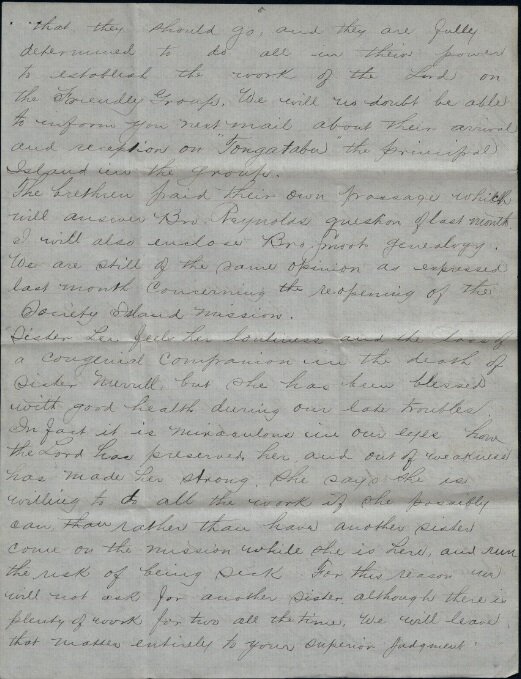 that they should go, and they are fully
determined to do all in their power
to establish the work of the Lord on
the Friendly Group. We will no doubt be able
to inform you next mail about their arrival
and reception on "Tongatabu" the principal
Island in the group.
The brethren paid their own passage which
will answer Bro Reynolds question of last month.
I will also enclose Bro. Smoot genealogy.
We are still of the same opinion as expressed
last month concerning the reopening of the
Society Island mission.
Sister Lee feels her lonliness and the loss of
a congenial companion in the death of
Sister Merrill, but she has been blessed
with good health during our late troubles.
In fact it is miraculous in our eyes how
the Lord has preserved her, and out of weakness
has made her strong. She says she is
willing to do all the work if she possibly
can, than rather than have another sister
come on the mission while she is here, and run
the risk of being sick. For this reason we
will not ask for another sister, although there is
plenty of work for two all the time. We will leave
that matter entirely to your superior judgment.